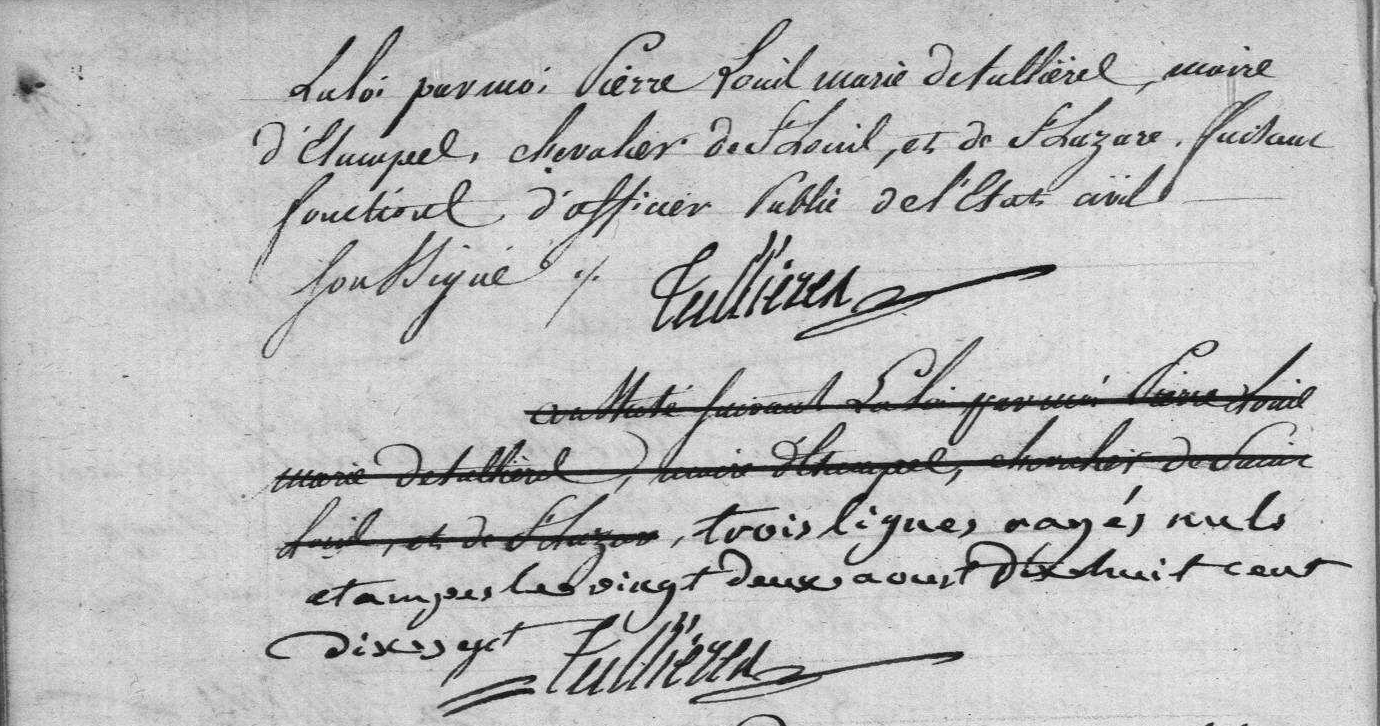 La loi par moi Pierre Louis marie de tullieres, maire
d'Etampes, chevalier de St Louis, et de St Lazare, faisant
fonctions d'officier Public de l'Etat civil
soussigné ·/· Tullieres
constaté suivant La loi par moi Pierre Louis
marie de tullieres, maire d'Etampes, chevalier de Saint
Louis, et de St Lazar, trois lignes rayés nuls
etampes le vingt deux aoust dix huit cent
dix sept Tullieres